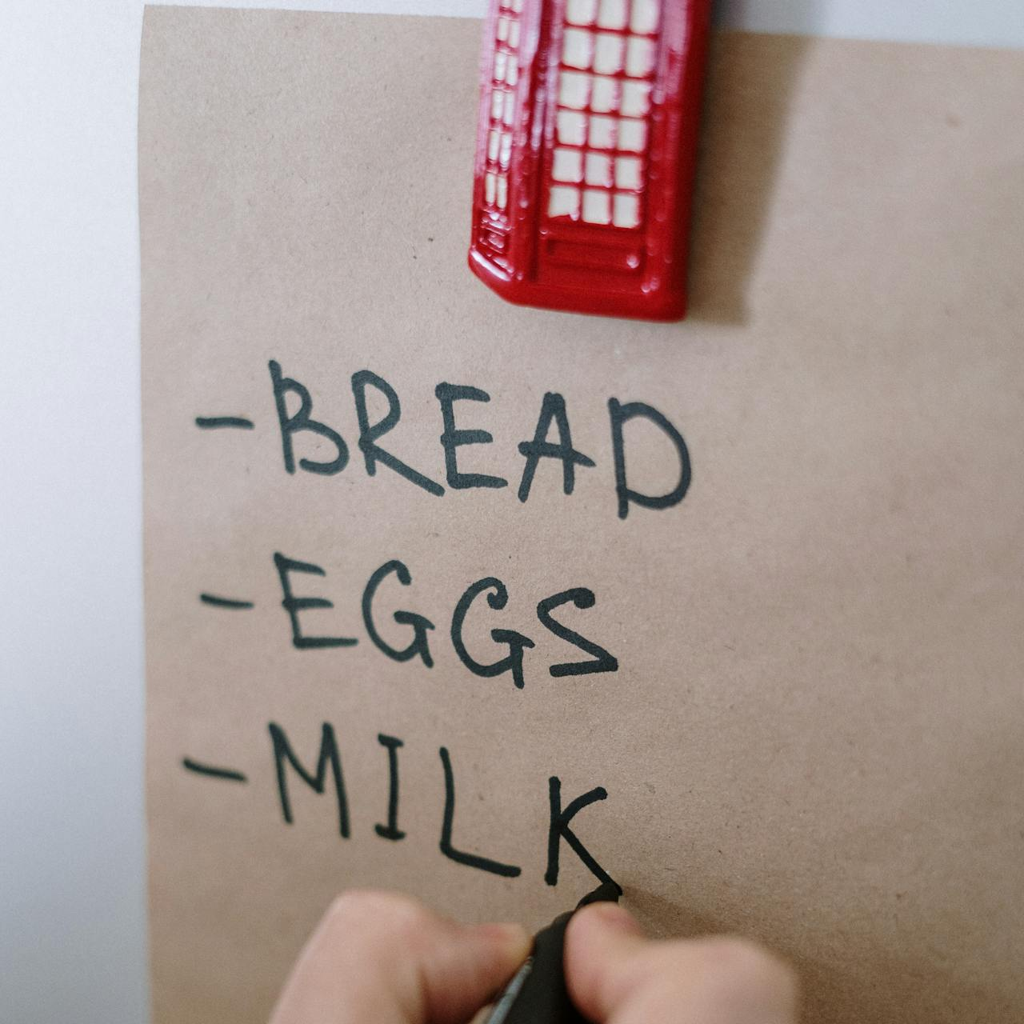 - BREAD
- EGGS
- MILK